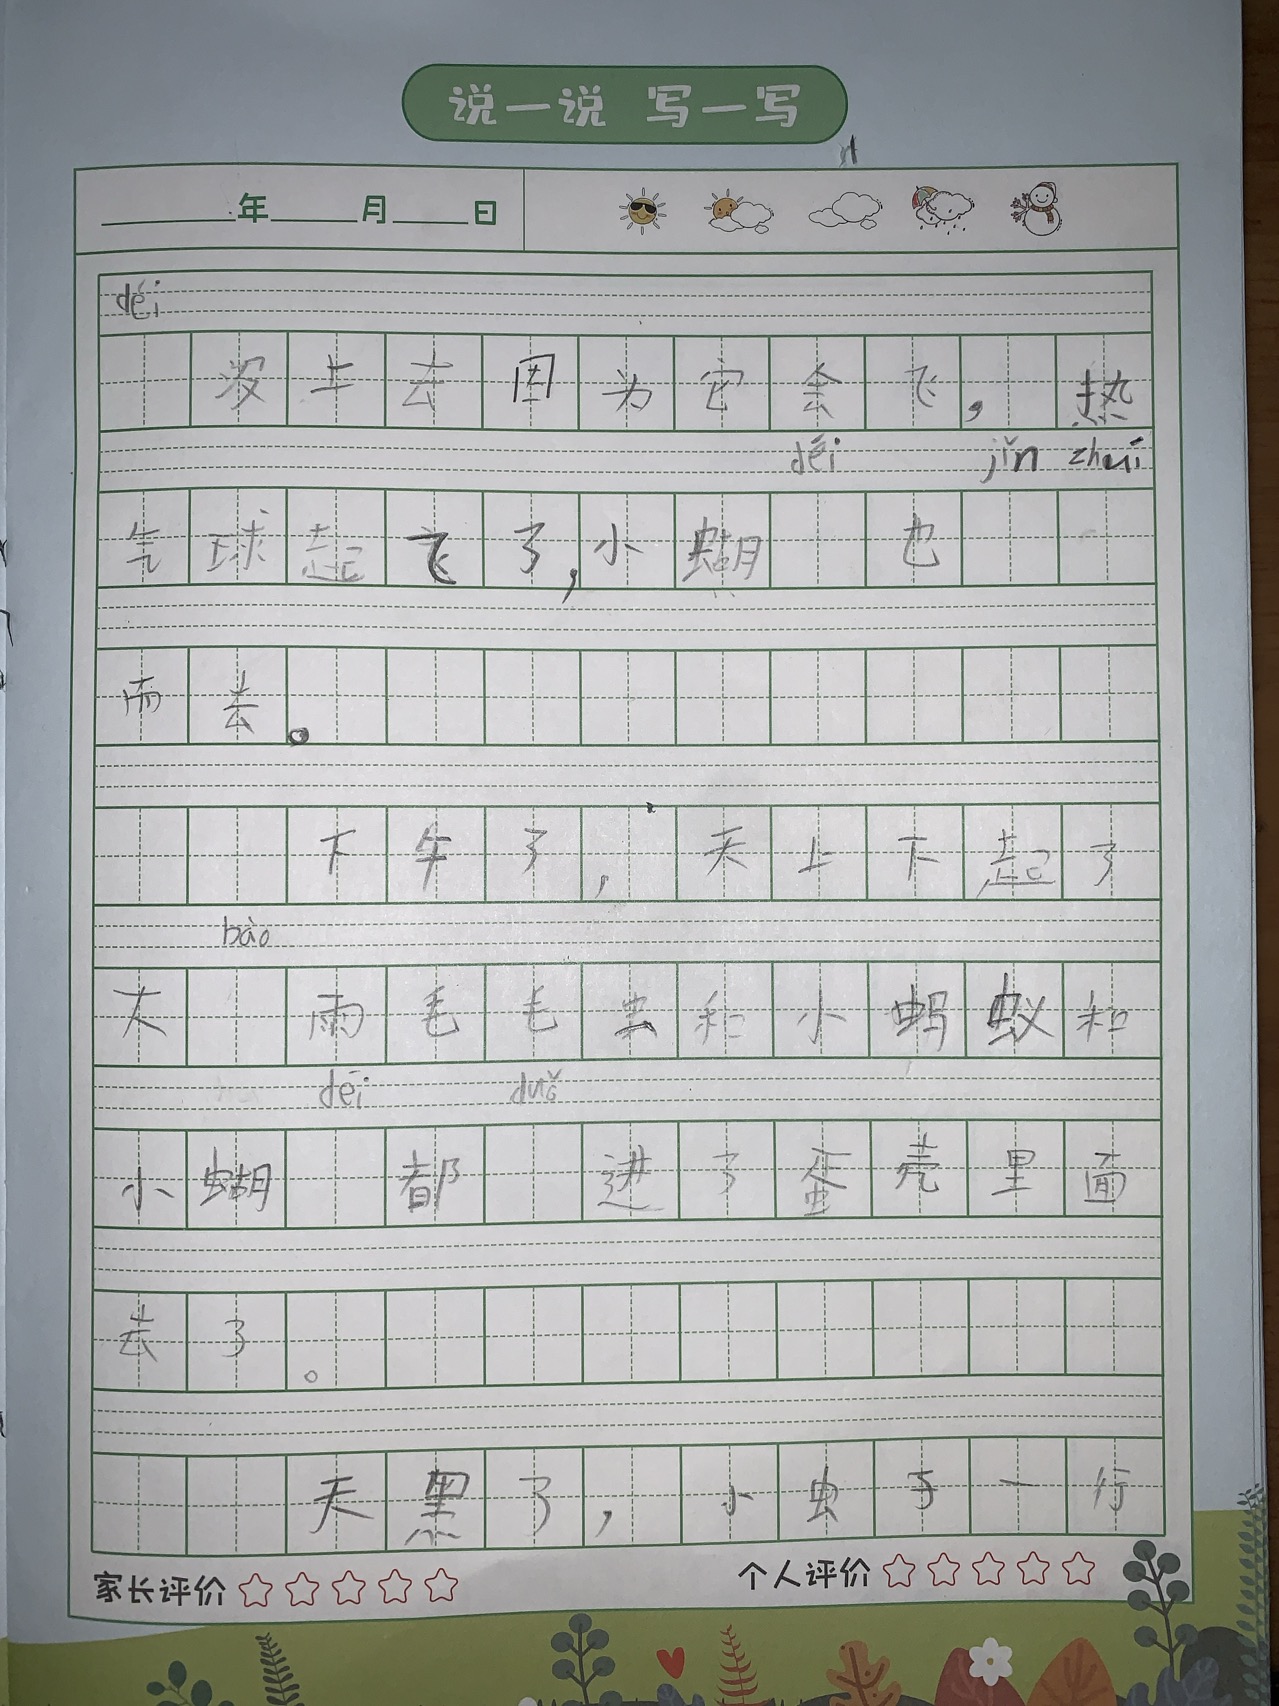 说一说 写一写
年 月 日
déi
没上去因为它会飞，热
déi jǐn zhuí
气球起飞了，小蝴 也
而去。
下午了，天上下起了
bào
大 雨毛毛虫和小蚂蚁和
déi duǒ
小蝴 都 进了蛋壳里面
去了。
天黑了，小虫子一行
家长评价
个人评价